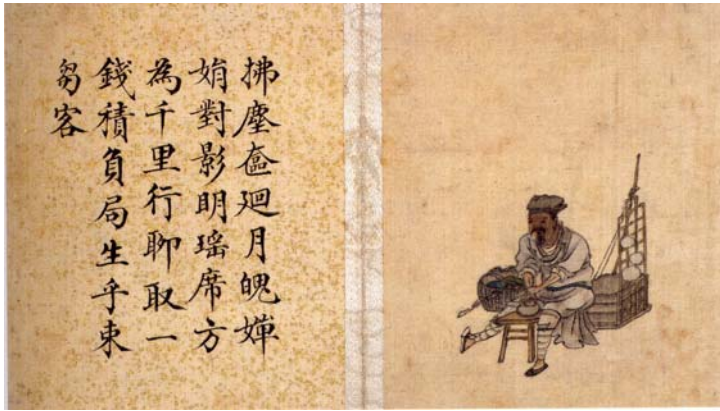 拂塵奩廻月魄嬋
娟對影明瑶席方
為千里行聊取一
錢積負局生乎東
芻客